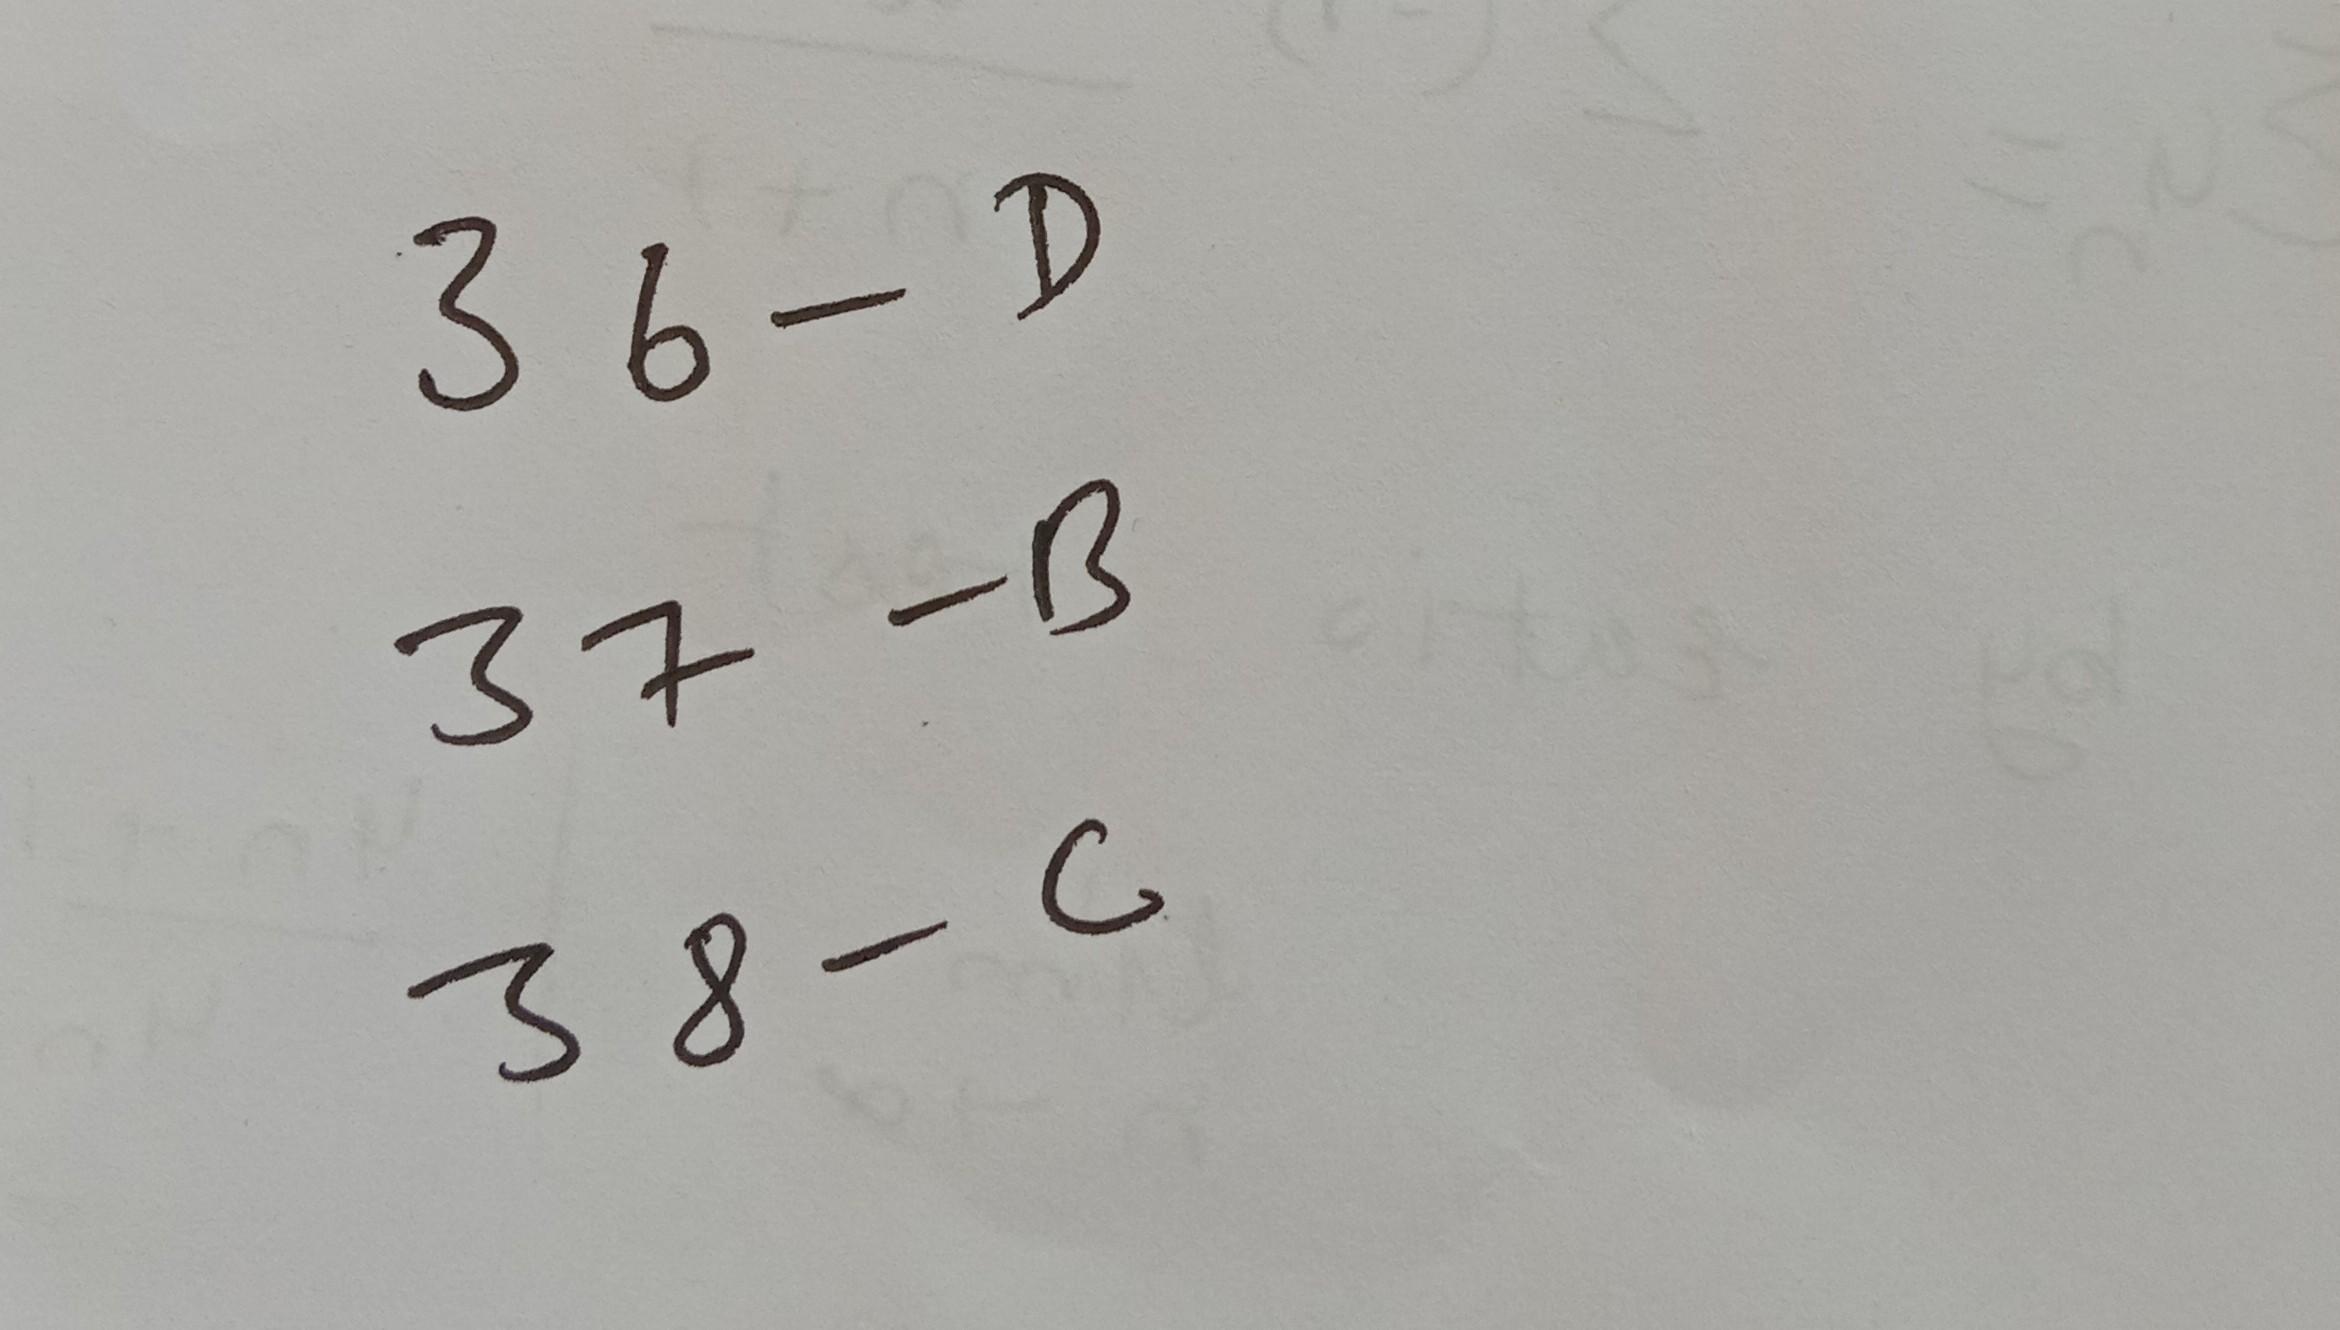 36 - D
37 - B
38 - C